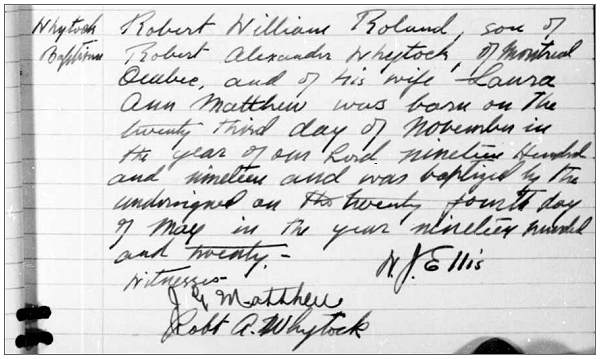 Whytock
Baptism
Robert William Roland, son of
Robert Alexander Whytock, of Montreal
Quebec, and of his wife Laura
Ann Matthew was born on the
twenty third day of November in
the year of our Lord nineteen Hundred
and nineteen and was baptized by the
undersigned on the twenty fourth day
of May in the year nineteen hundred
and twenty.-
W. J. Ellis
Witnesses-
J G Matthew
Robt A. Whytock